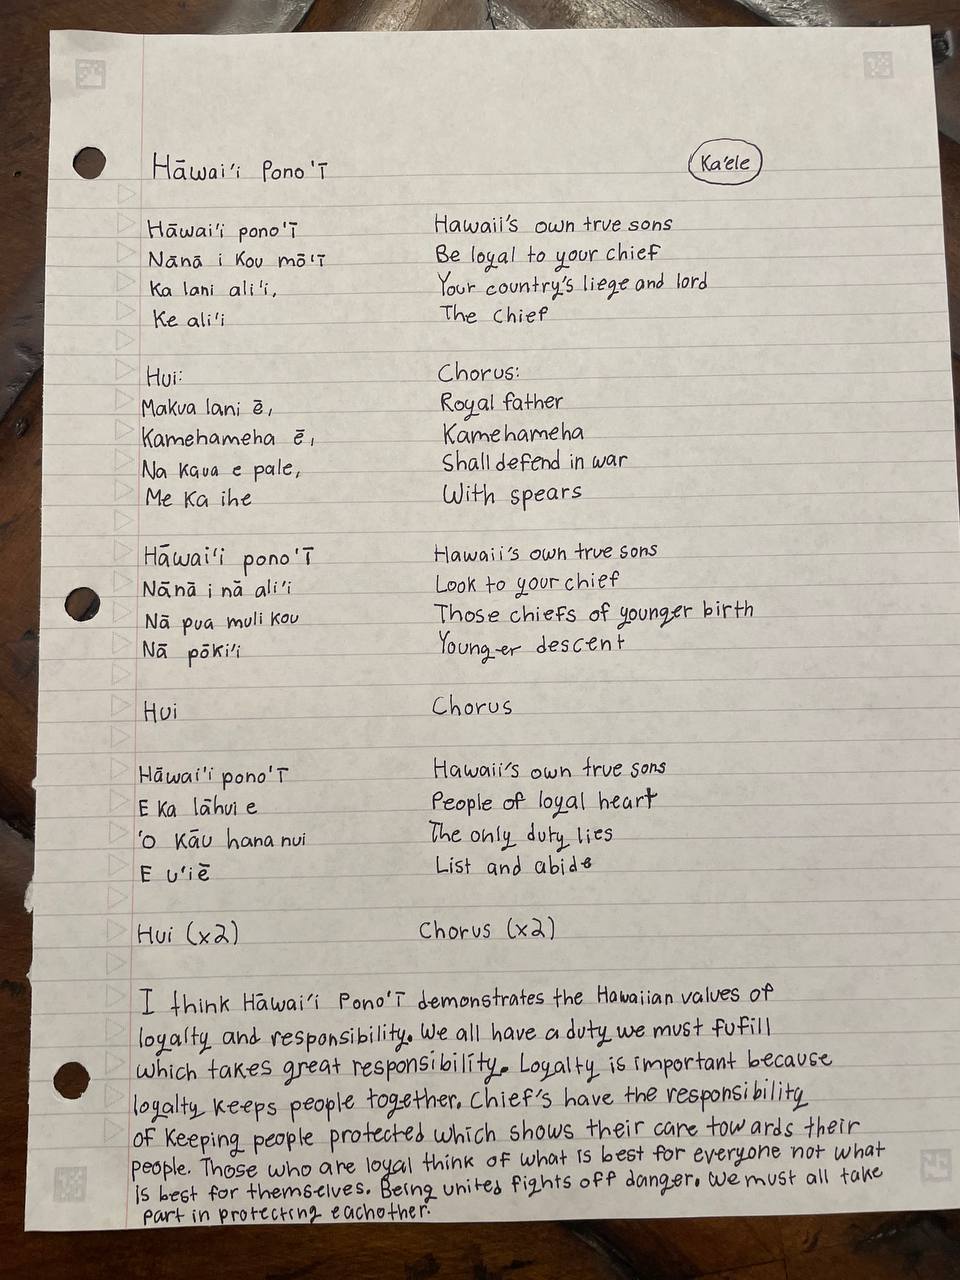 Hāwai'i Pono'ī
Ka'ele
Hāwai'i pono'ī
Hawaii's own true sons
Nānā i Kou mō'ī
Be loyal to your chief
Ka lani ali'i,
Your country's liege and lord
Ke ali'i
The chief
Hui:
Chorus:
Makua lani ē,
Royal father
Kamehameha ē,
Kamehameha
Na Kaua e pale,
Shall defend in war
Me Ka ihe
With spears
Hāwai'i pono'ī
Hawaii's own true sons
Nānā i nā ali'i
Look to your chief
Nā pua muli Kou
Those chiefs of younger birth
Nā pōki'i
Younger descent
Hui
Chorus
Hāwai'i pono'ī
Hawaii's own true sons
E Ka lāhui e
People of loyal heart
'O Kāu hana nui
The only duty lies
E u'iē
List and abide
Hui (x2)
Chorus (x2)
I think Hāwai'i Pono'ī demonstrates the Hawaiian values of
loyalty and responsibility. We all have a duty we must fufill
which takes great responsibility. Loyalty is important because
loyalty keeps people together. Chief's have the responsibility
of Keeping people protected which shows their care towards their
people. Those who are loyal think of what is best for everyone not what
is best for themselves. Being united fights off danger. We must all take
part in protecting eachother.